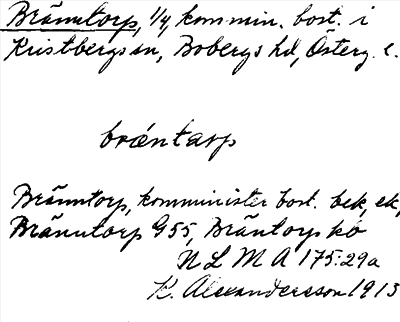 Bränntorp, 1/4 kommin. bost. i
Kristbergs sn, Bobergs hd, Österg. l.
brǽntarp
Bränntorp, komminister bost. bek, ek,
Bränntorp G55, Bräntorps kö
N L M A 175:29a
K. Alexandersson 1913